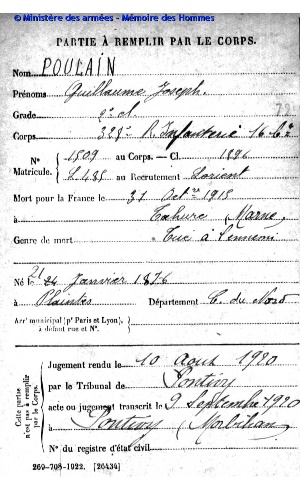 © Ministère des armées - Mémoire des Hommes
PARTIE À REMPLIR PAR LE CORPS.
Nom POULAIN
Prénoms Guillaume Joseph.
Grade 2e cl.
Corps 328e R. Infanterie 16e Cie
N° 1509 au Corps. — Cl. 1896
Matricule. L 485 au Recrutement Lorient
Mort pour la France le 31 Octbre 1915
à Tahure (Marne)
Genre de mort Tué à l'ennemi
21
Né le 24 Janvier 1876
à Département C. du Nord
Arrt municipal (pr Paris et Lyon),
à défaut rue et N°.
Cette partie n'est pas à remplir par le Corps.
Jugement rendu le 10 Août 1920
par le Tribunal de Pontivy
acte ou jugement transcrit le 9 Septembre 1920
à Pontivy (Morbihan)
N° du registre d'état civil
269-708-1922. [26434]